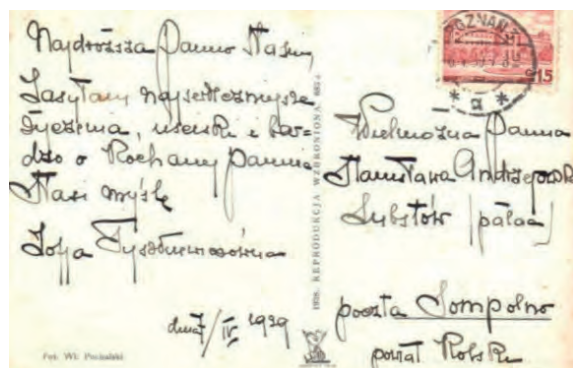 Najdroższa Panno Stasiu,
Zasyłam najserdeczniejsze
życzenia, uściski i bar-
dzo o Kochanej Pannie
Stasi myślę
Zofja
dnia 7/IV 1939
Fot. Wł. Pochalski
1938. REPRODUKCJA WZBRONIONA
POZNAŃ
15
Wielmożna Panna
Stanisława
Lubstów (pałac)
poczta Sompolno
powiat Kolski